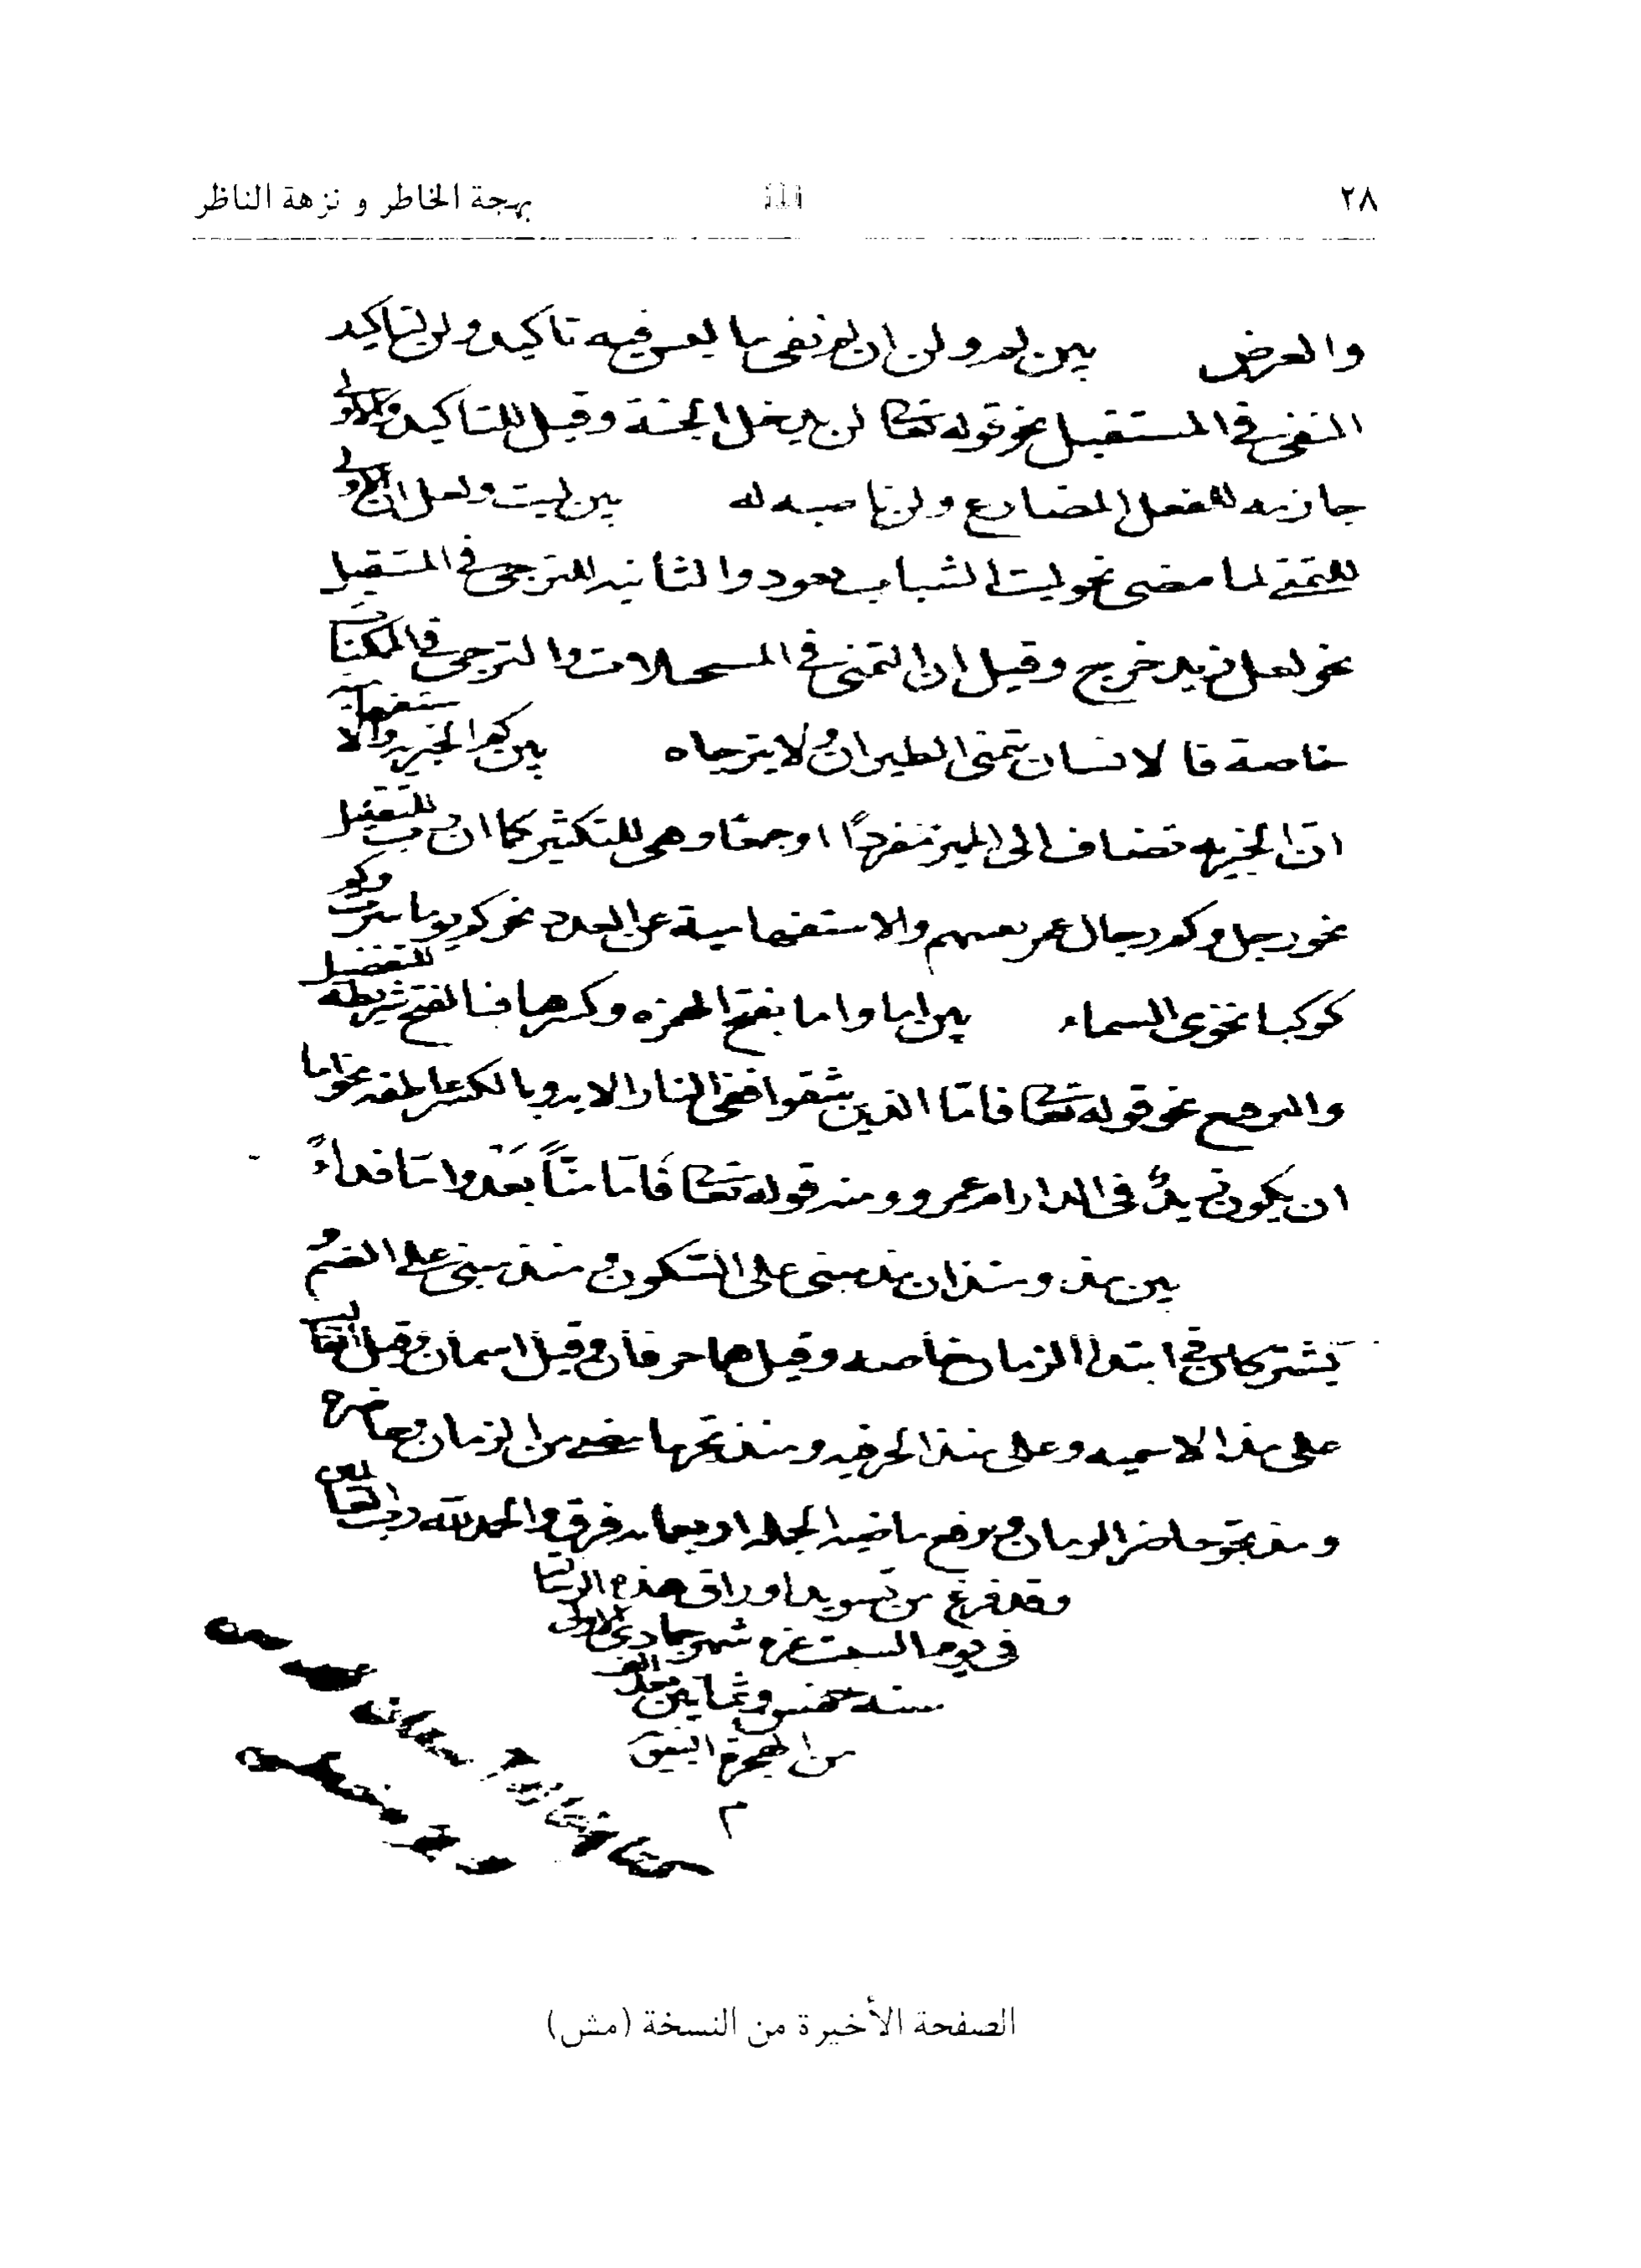 ٢٨
بهجة الخاطر و نزهة الناظر
والعرض بين لم ولن ان لم نفى ما ليس فيه تاكيد ولن لتاكيد
النفى فى المستقبل نحو قوله تعالى لن يدخل الجنة وقيل للتاكيد والاولى
جازمه للفعل المضارع ولن ناصبه له بين ليت ولعل ان الاولى
للتمنى لما مضى نحو ليت الشباب يعود والثانيه للترجى فى المستقبل
نحو لعل زيد خرج وقيل ان التمنى فى المستحلات والترجى فى الممكنات
خاصة فالانسان يتمنى الطيران ولا يترجاه بين كم الخبريه والاستفهامية
ان الخبريه تضاف الى المميز مفردًا او جمعًا وهى للتكثير كما ان رب للتقليل
نحو رجل وكم رجال عمر بعسهم والاستفهامية عن العدد نحو كم يوما سرت وكم
كوكبا نحوى السماء بين اما واما بفتح الهمزه وكسرها فبالفتح شرطية للتفضيل
والىوصع نحو قوله تعالى فامّا الذين شقوا ففى النار الايه وبالكسر عاطفه نحو اما
ان يكون زيدٌ فى الدار ام عمرو ومنه قوله تعالى فَامّا منّاً بَعْد وامّا فداءً
بين مذ ومنذ ان مذ مبنى على السّكون و منذ مبنى على الضم و
يشتركان فى ابتدا الزمان خاصه وقيل هما حرفان و قيل اسمان وقيل الغالب
على مذ الاسميه وعلى منذ الحرفيه ومنذ تجرها مضى من الزمان وحاضره
ومذ تجر حاضر الزمان و يرفع ماضيه الجمله اربعمايه فرق والحمد لله رب العالمين
وقد فرغ من تسويد اوراق هذه الرسالة
فى يوم السبت غره شهر جمادى الاولى
سنه خمس وثمانين بعد الف
من الهجرة النبوية
م
الصفحة الأخيرة من النسخة (مش)